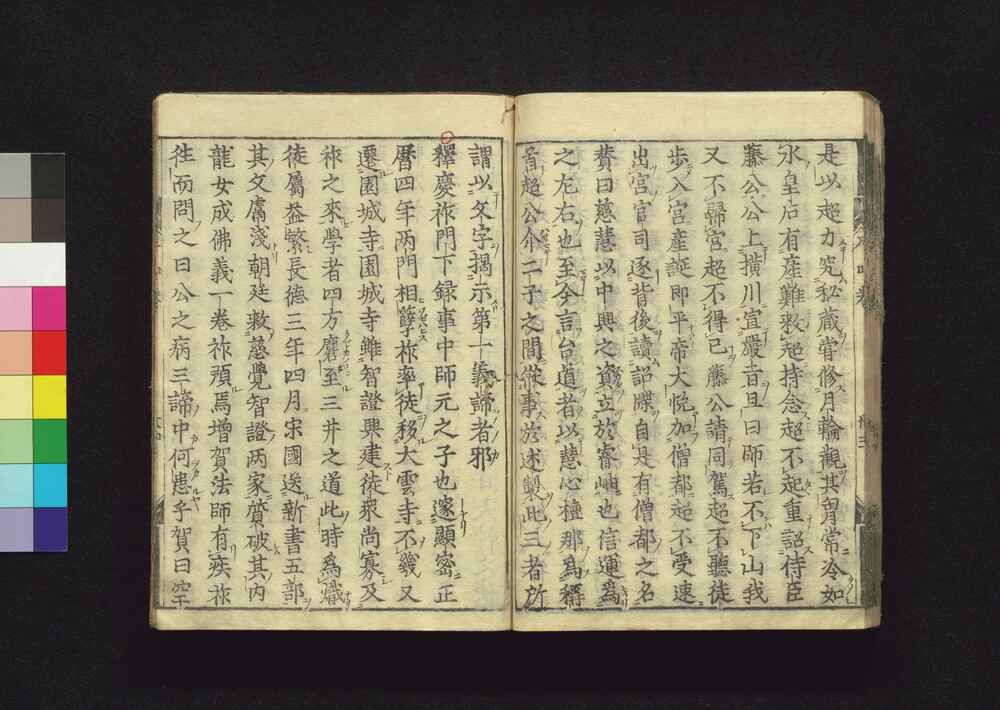 是以超力究秘藏嘗修月輪觀其胷常冷如
氷皇后有産難救超持念超不起重詔侍臣
藤公公上横川宣嚴旨且曰師若不下山我
又不歸宮超不得已藤公請同駕超不聽徒
歩入宮産誕即平帝大悦加僧都超不受速
出宮官司逐背後讀詔牒自是有僧都之名
賛曰慈慧以中興之資立於睿岫也信運爲
之左右也至今言台道者以慧心檀那爲稱
首超公介二子之間從事於述製此三者所
謂以文字揭示第一義諦者邪
釋慶祚門下録事中師元之子也邃顯密正
曆四年两門相孽祚率徒移大雲寺不幾又
遷園城寺園城寺雖智證興建徒衆尚寡及
祚之來學者四方麏至三井之道此時爲熾
徒屬益繁長德三年四月宋國送新書五部
其文膚淺朝廷敕慈覺智證两家質破其内
龍女成佛義一卷祚預焉增賀法師有疾祚
往而問之曰公之病三諦中何患乎賀曰空